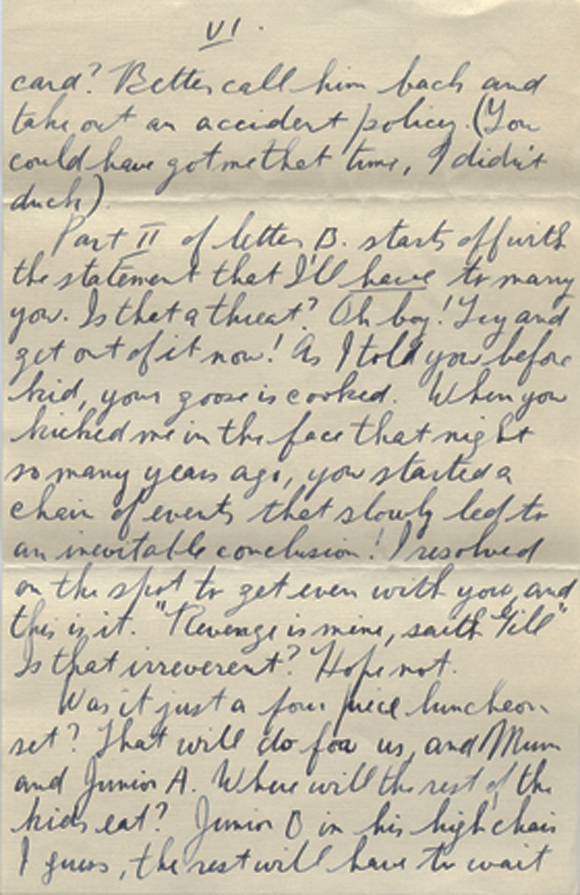 VI.
card? Better call him back and
take out an accident policy. (You
could have got me that time, I didn't
duck).
Part II of letter B. starts off with
the statement that I'll have to marry
you. Is that a threat? Oh boy! Try and
get out of it now! As I told you before
kid, your goose is cooked. When you
kicked me in the face that night
so many years ago, you started a
chain of events that slowly led to
an inevitable conclusion! I resolved
on the spot to get even with you, and
this is it. "Revenge is mine, saith Gill"
Is that irreverent? Hope not.
Was it just a four piece luncheon
set? That will do for us, and Mum
and Junior A. Where will the rest of the
kids eat? Junior B in his high chair
I guess, the rest will have to wait